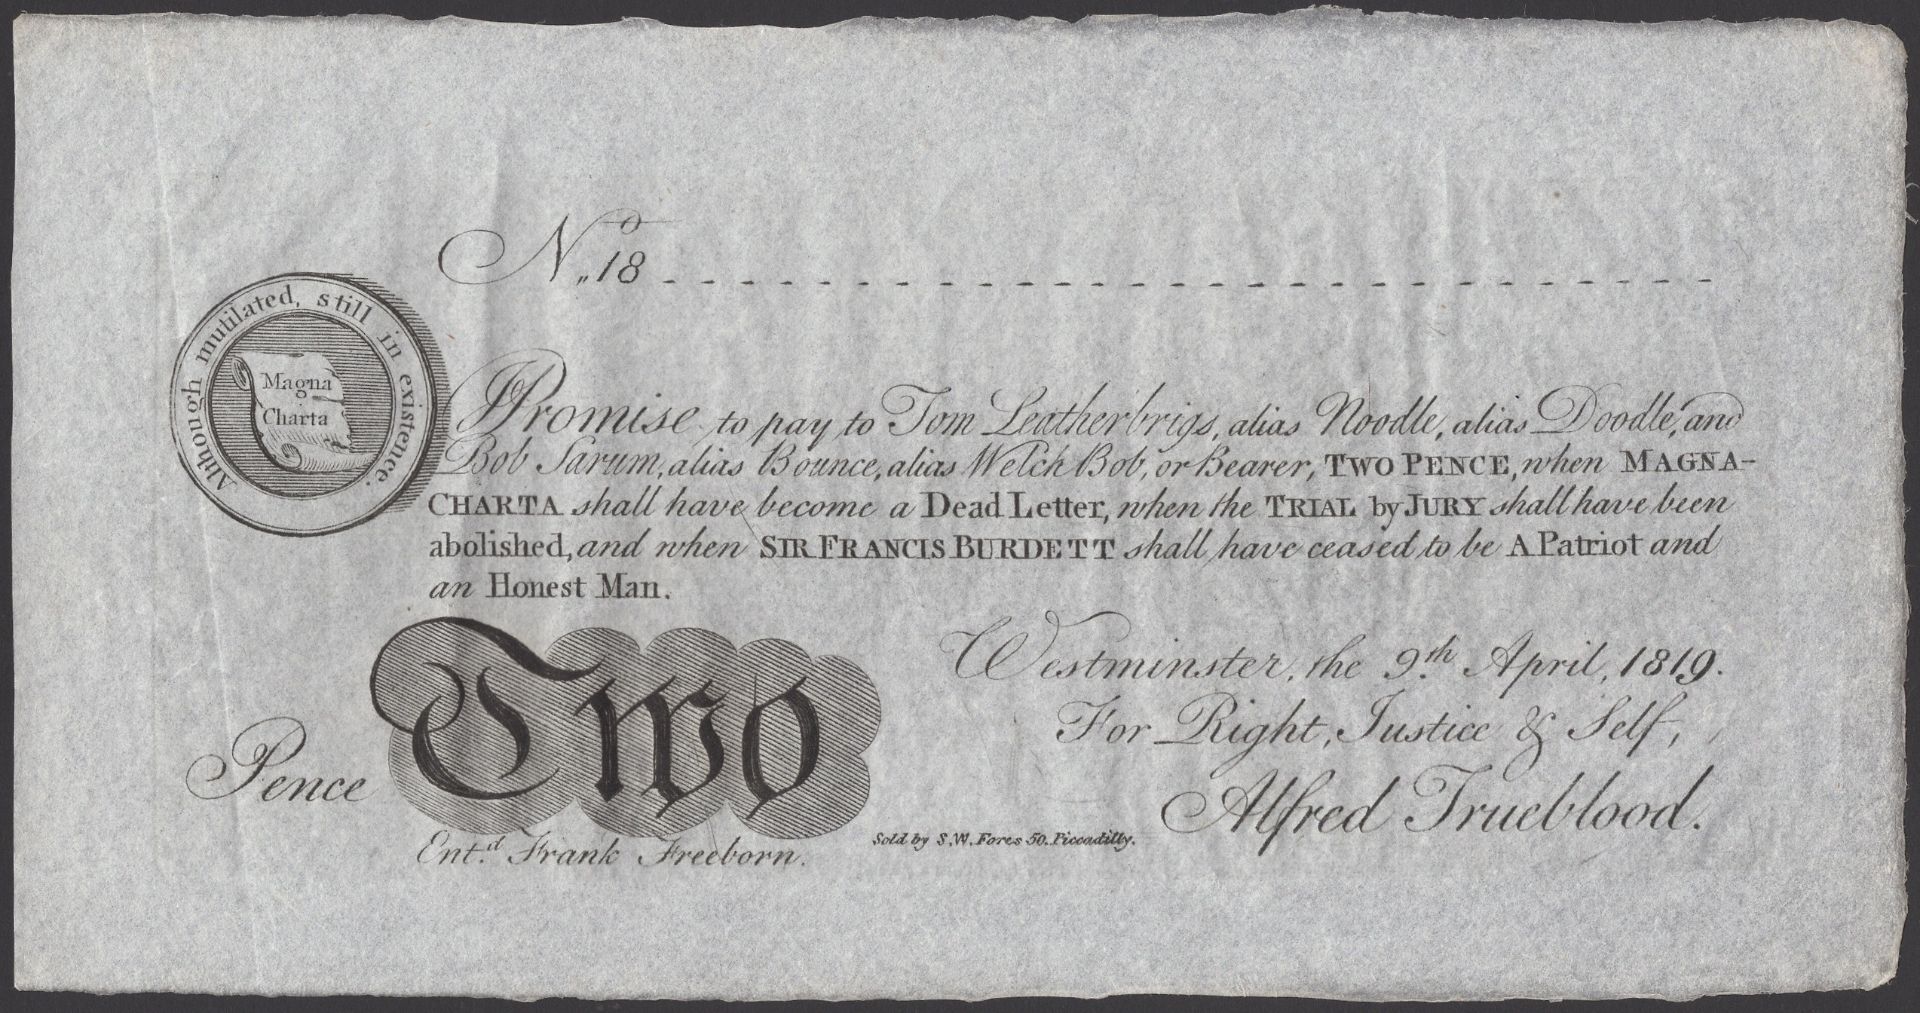 No. 18
Although mutilated, still in existence.
Magna
Charta
I Promise to pay to Tom Leatherbrigs, alias Noodle, alias Doodle, and
Bob Sarum, alias Bounce, alias Welch Bob, or Bearer, TWO PENCE, when MAGNA-
CHARTA shall have become a Dead Letter, when the TRIAL by JURY shall have been
abolished, and when SIR FRANCIS BURDETT shall have ceased to be A Patriot and
an Honest Man.
Westminster, the 9th April, 1819.
For Right, Justice & Self,
Pence Two
Alfred Trueblood.
Ent.d Frank Freeborn.
Sold by S.W. Fores 50. Piccadilly.